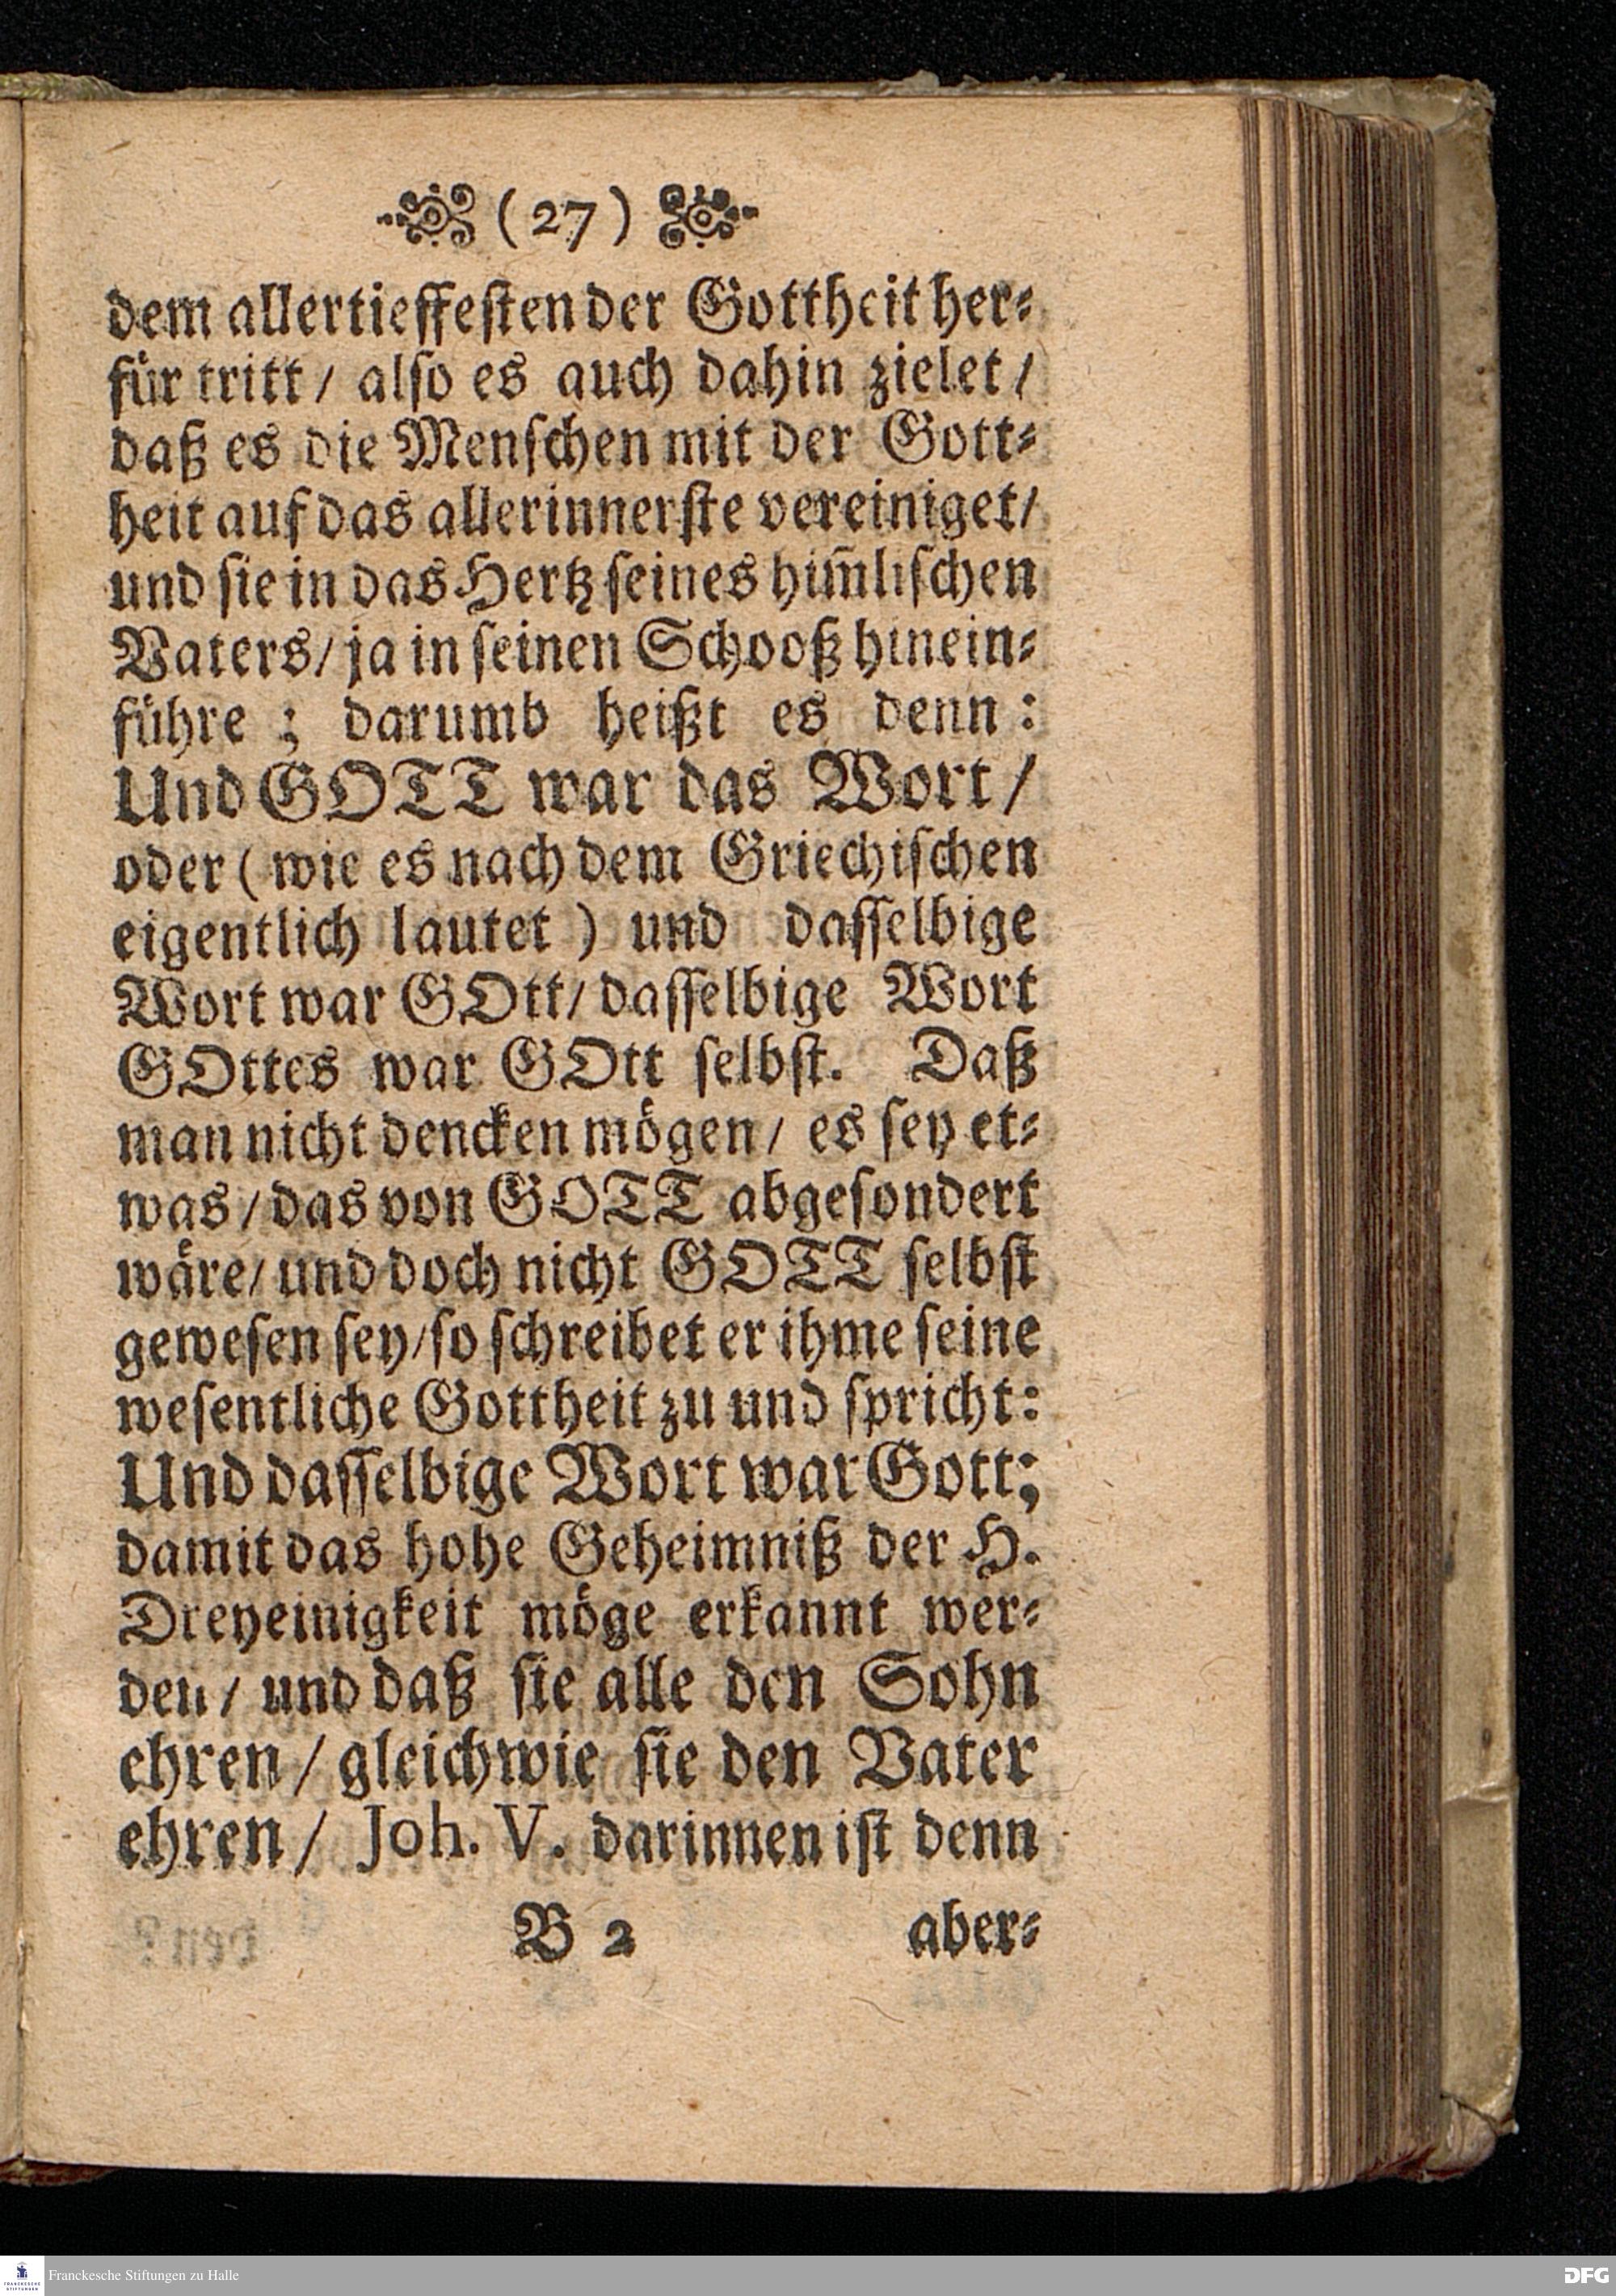 (27)
dem allertieffesten der Gottheit her⸗
für tritt/ also es auch dahin zielet/
daß es die Menschen mit der Gott⸗
heit auf das allerinnerste vereiniget/
und sie in das Hertz seines him̃lischen
Vaters/ ja in seinen Schooß hinein⸗
führe; darumb heißt es denn:
Und GOTT war das Wort/
oder (wie es nach dem Griechischen
eigentlich lautet) und dasselbige
Wort war GOtt/ dasselbige Wort
GOttes war GOtt selbst. Daß
man nicht dencken mögen/ es sey et⸗
was/ das von GOTT abgesondert
wäre/ und doch nicht GOTT selbst
gewesen sey/ so schreibet er ihme seine
wesentliche Gottheit zu und spricht:
Und dasselbige Wort war Gott;
damit das hohe Geheimniß der H.
Dreyeinigkeit möge erkannt wer⸗
den/ und daß sie alle den Sohn
ehren/ gleichwie sie den Vater
ehren/ Joh. V. darinnen ist denn
B 2 aber⸗
Franckesche Stiftungen zu Halle
DFG